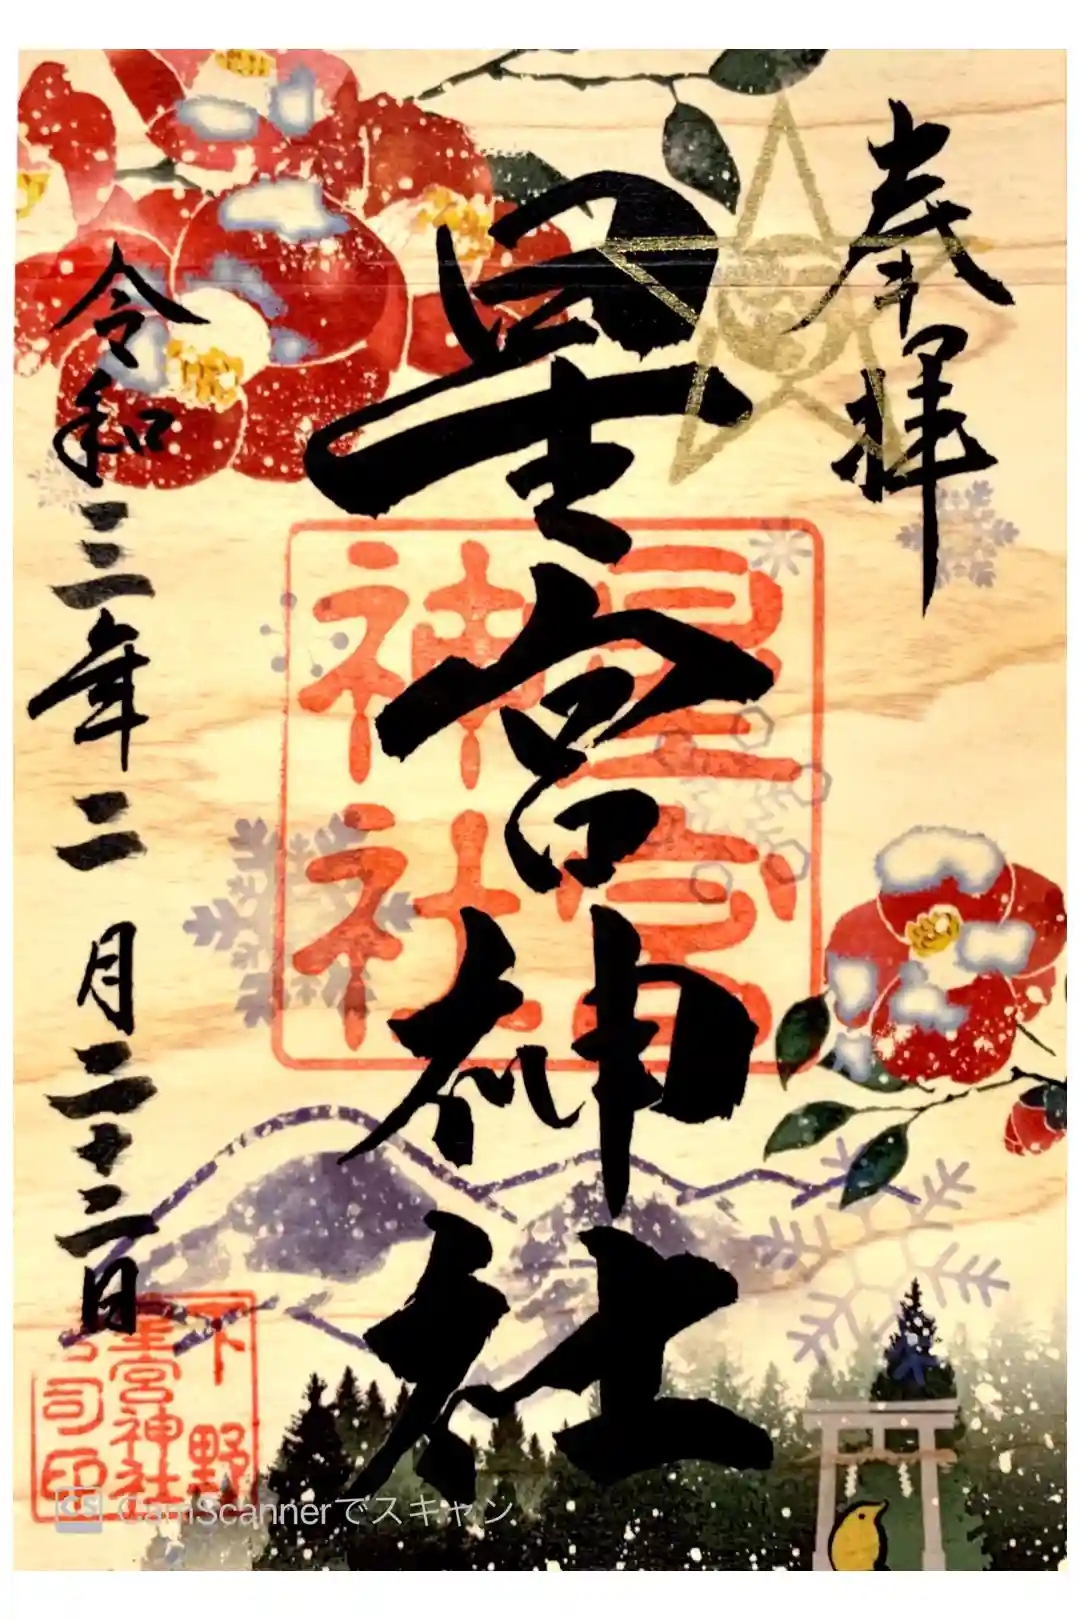 奉拝
星宮神社
星宮
神社
令和三年二月二十二日
下野
星宮神社
司印
CamScannerでスキャン